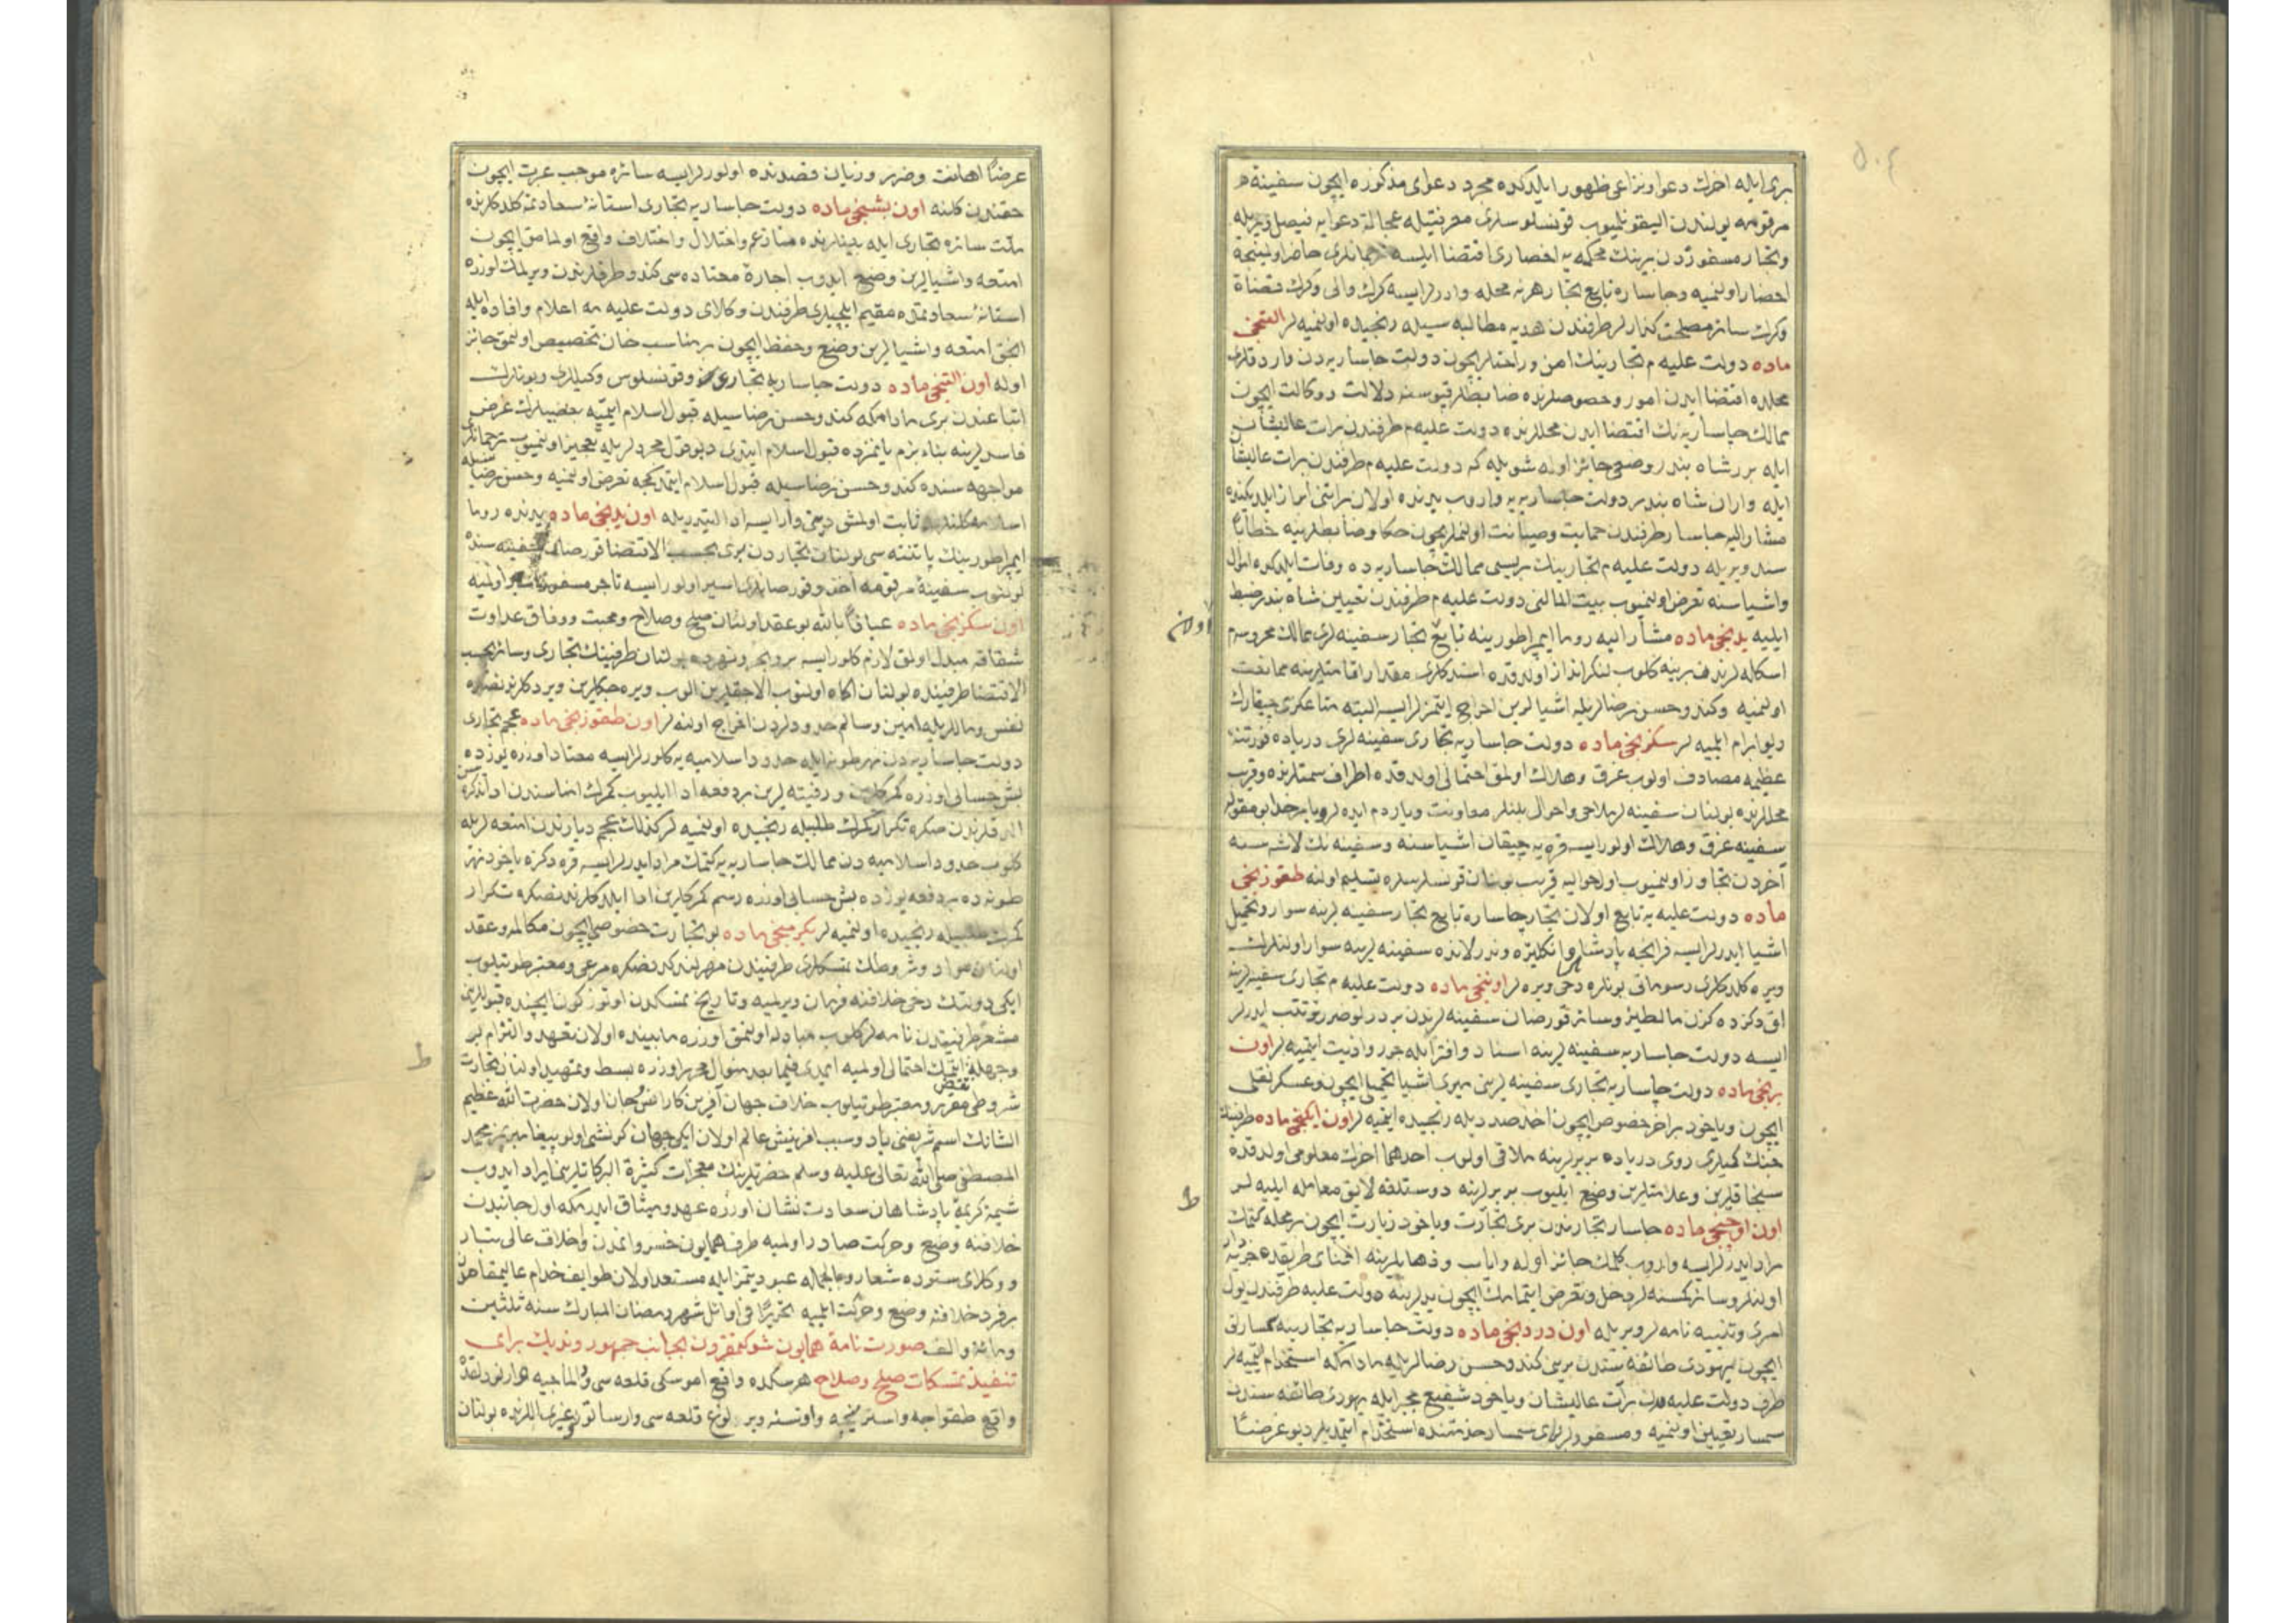 بری ایله اخرك دعوا و نزاعی ظهور ایلدکده مجرد دعوای مذکوره ایچون سفینهٔ
مرقومه یولندن الیقونلمیوب قونسلوسلری معرفتیله عجالة دعوایه فیصل ویریله
وتجار مسفوردن برینك محکمه یه احضاری اقتضا ایلسه ترجمانلری حاضر اولمینجه
احضار اولنمیه وچاساره تابع تجار هر نه محله وارر لرایسه کرك والی وکرك قضاة
وکرك سائر مصلحت کذارلر طرفندن هدیه مطالبه سیله رنجیده اولنمیه لر التنجی
ماده دولت علیه م تجارینك امن وراحتلریچون دولت چاساریه دن وارد قلری
محلده اقتضا ایدن امور وخصوصلرنده ضابطلر قپوسنه دلالت ووکالت ایچون
ممالك چاساریه نك اقتضا ایدن محللرنده دولت علیه م طرفندن برات عالیشان
ایله برر شاه بندر وضعی جائز اوله شویله که دولت علیه م طرفندن برات عالیشان
ایله واران شاه بندر دولت چاساریه یه واروب یدنده اولان براتنی ابراز ایلدیکنده
مشارالیه چاسار طرفندن حمایت وصیانت اولنملریچون حکام وضابطلرینه خطابا
سند ویریله دولت علیه م تجارینك بریسی ممالك چاساریه ده وفات ایلدکده اموال
واشیاسنه تعرض اولنمیوب بیت المالنی دولت علیه م طرفندن تعیین شاه بندر ضبط
ایلیه یدنجی ماده مشارالیه روما ایمپراطورینه تابع تجار سفینه لری ممالك محروسه م
اسکله لرندن برینه کلوب لنکر انداز اولدقده استدکلری مقدار اقامتلرینه ممانعت
اولنمیه وکندو حسن رضالریله اشیالرین اخراج ایتمزلر ایسه البته متاعکزی چیقارك
دیو ابرام ایلمیه لر سکزنجی ماده دولت چاساریه تجاری سفینه لری دریاده فورتنهٔ
عظیمه مصادف اولوب غرق وهلاك اولمق احتمالی اولدقده اطراف سمتلرنده وقریب
محللرنده بولنان سفینه لر ملاحی واحوال بلنلر معاونت ویاردم ایده لر وبا بر خدا بو مقوله
سفینه غرق وهلاك اولور ایسه قره یه چیقان اشیاسنه وسفینه نك لاشه سنه
آخردن تجاوز اولنمیوب اول حوالیه قریب بولنان قونسلسلره تسلیم اولنه طقوزنجی
ماده دولت علیه یه تابع اولان تجار چاساره تابع تجار سفینه لرینه سوار وتحمیل
اشیا ایدرلر ایسه فرانجه پادشاهی وانکلتره وندرلانده سفینه لرینه سوار اولنلرك
ویره کلدکلری رسوماتی بونلره دخی ویره لر اوننجی ماده دولت علیه م تجاری سفینه لرینه
اق دکزده کزن مالطیز وسائر قورصان سفینه لرندن بردرلو ضرر ترتب ایدرلر
ایسه دولت چاساریه سفینه لرینه اسناد وافترا ایله جور واذیت ایتمیه لر اون
برنجی ماده دولت چاساریه تجاری سفینه لرینی میری اشیا تحمیلی ایچون وعسکر نقلی
ایچون ویاخود براخر خصوص ایچون اخذ صددیله رنجیده ایتمیه لر اون ایکنجی ماده طرفینك
جنك کمیلری روی دریاده بربرلرینه ملاقی اولوب احدهما اخرك معلومی اولدقده
سنجاقلرین وعلامتلرین وضع ایلیوب بربرلرینه دوستلغه لایق معامله ایلیه لر
اون اوچنجی ماده چاسار تجارندن بری تجارت ویاخود زیارت ایچون بر محله کتمك
مراد ایدرلر ایسه واروب کلمك جائز اوله وایاب وذهابلرینه اثنای طریقده خرجدار
اولنلر وسائر کمسنه لر دخل وتعرض ایتمامك ایچون یدلرینه دولت علیه طرفندن یول
امری وتنبیه نامه لر ویریله اون دردنجی ماده دولت چاساریه تجارینه کمسارلق
ایچون یهودی طائفه سندن برینی کندو حسن رضالریله مادامکه استخدام ایتمیه لر
طرف دولت علیه مدن برات عالیشان ویاخود شفیع عجز ایله یهودی طائفه سندن
سمسار تعیین اولنمیه ومسفورلر برای سمسار خدمتنده استخدام ایتمدیلر دیو عرضا
اون
ط
عرضا اهانت وضرر وزیان قصدنده اولورلر ایسه سائره موجب عبرت ایچون
حقندن کلنه اون بشنجی ماده دولت چاساریه تجاری استانهٔ سعادتمه کلدکلرنده
ملت سائره تجاری ایله بینلرنده منازعه واختلال واختلاف واقع اولمامق ایچون
امتعه واشیالرین وضع ایدوب اجارهٔ معتاده سی کندو طرفلرندن ویرلمك اوزره
استانهٔ سعادتمده مقیم ایلچیلری طرفندن وکلای دولت علیه مه اعلام وافاده ایله
انجق امتعه واشیالرین وضع وحفظ ایچون بر مناسب خان تخصیص اولنمق جائز
اوله اون التنجی ماده دولت چاساریه تجاری وقونسلوس وکیللری وبونلرك
اتباعندن بری مادامکه کندو حسن رضاسیله قبول اسلام ایتمیه بعضیلرك غرض
فاسدلرینه بناء بزم یانمزده قبول اسلام ایتدی دیو قول مجردلریله تعجیز اولنمیوب ترجمانلری
مواجهه سنده کندو حسن رضاسیله قبول اسلام ایتمدکجه تعرض اولنمیه وحسن رضاسیله
اسلامه کلنلرك ثابت اولمش دینی وار ایسه ادا ایتدیریله اون یدنجی ماده یدنده روما
ایمپراطورینك پاتنته سی بولنان تجاردن بری بحسب الاقتضا قورصان سفینه سنده
بولنوب سفینهٔ مرقومه اخذ وقورصانلری اسیر اولور ایسه تاجر مسفور اسیر اولنمیه
اون سکزنجی ماده عیاذا بالله بو عقد اولنان صلح وصلاح ومحبت ووفاق عداوت
شقاقه مبدل اولمق لازم کلور ایسه بر وبحر ونهرده بولنان طرفینك تجاری وسائر بحسب
الاقتضا طرفینده بولنان اکاه اولنوب الاجقلرین الوب ویره جکلرین ویردکلرندنصکره
نفس وماللریله امین وسالم حدودلردن اخراج اولنه لر اون طقوزنجی ماده عجم تجاری
دولت چاساریه دن نهر طونه ایله حدود اسلامیه یه کلورلر ایسه معتاد اوزره یوزده
بش حسابی اوزره کمرکلرین ورفتیه لرین بردفعه ادا ایلیوب کمرك امناسندن ادا تذکره سن
الدقلرندن صکره تکرار کمرك طلبیله رنجیده اولنمیه لر کذلك عجم دیارندن امتعه لریله
کلوب حدود اسلامیه دن ممالك چاساریه یه کتمك مراد ایدرلر ایسه قره دکزه یاخود نهر
طونه ده بردفعه یوزده بش حسابی اوزره رسم کمرکلرین ادا ایلدکلرندنصکره تکرار
کمرك طلبیله رنجیده اولنمیه لر یکرمنجی ماده بو تجارت خصوصی ایچون مکالمه وعقد
اولنان مواد وشروطك تمسکلری طرفیندن مهرلندکدنصکره مرعی ومعتبر طوتیلوب
ایکی دولتك دخی خلافنه فرمان ویرلمیه وتاریخ تمسکدن اوتوز کون ایچنده قبوللرینی
مشعر طرفیندن نامه لر کلوب مبادله اولنمق اوزره مابینده اولان تعهد والتزام بر
وجهله نقض ایتمك احتمالی اولمیه ایمدی فیما بعد منوال محرر اوزره بسط وتمهید اولنان تجارت
شروطی مقرر ومعتبر طوتیلوب خلاف جهان آفرین کارساز انس وجان اولان حضرت الله عظیم
الشانك اسم شریفنی یاد وسبب افرینش عالم اولان ایکی جهان کونشی اولو پیغامبریمز محمد
المصطفی صلی الله تعالی علیه وسلم حضرتلرینك معجزات کثیرة البرکاتلرینی ایراد ایدوب
شیمهٔ کریمهٔ پادشاهان سعادت نشان اوزره عهد ومیثاق ایدرمکه اول جانبدن
خلافنه وضع وحرکت صادر اولمیه طرف همایون خسروانمدن واخلاف عالی تبار
ووکلای ستوده شعار وبالجمله عبودیتمز ایله مستعد اولان طوایف خدام عالیمقامدن
بر فرد خلافنه وضع وحرکت ایلمیه تحریرا فی اوائل شهر رمضان المبارك سنه ثلثین
ومائة والف صورت نامهٔ همایون شوکتمقرون بجانب جمهور وندیك برای
تنفیذ تمسکات صلح وصلاح هرسکده واقع اموسکی قلعه سی ودالماچیه هوارنورلقده
واقع طقواجه واسترنیچه واوتسنه ویرلوغ قلعه سی وارسانور وغیری اللرنده بولنان
ط